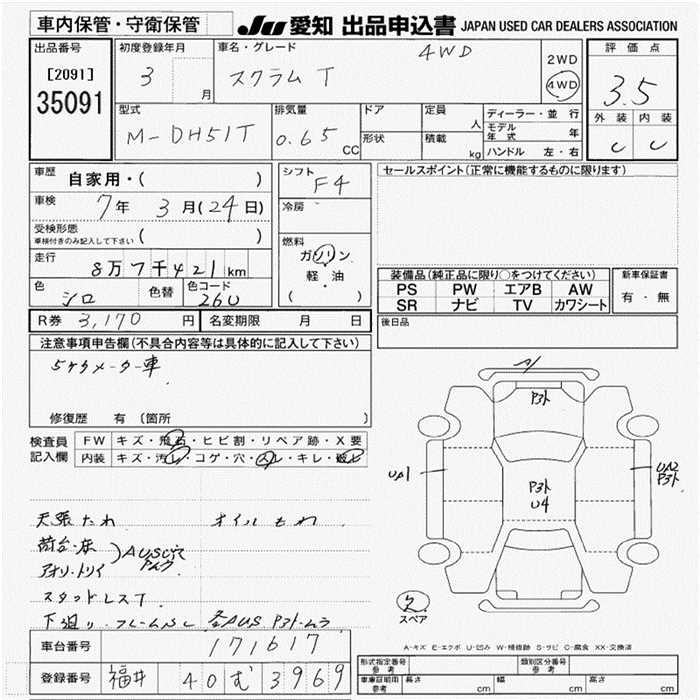 車内保管・守衛保管
JU 愛知 出品申込書 JAPAN USED CAR DEALERS ASSOCIATION
出品番号
[2091]
35091
初度登録年月
3
月
車名・グレード
スクラムT
4WD
2WD
4WD
評価点
3.5
外装 内装
C C
型式
M-DH51T
排気量
0.65 CC
ドア
形状
定員
人
積載
kg
ディーラー・並行
モデル年式 年
ハンドル 左・右
車歴
自家用・( )
車検
7年 3月(24日)
受検形態
車検付きのみ記入して下さい ( )
走行
8万7千421km
色
シロ
色替
色コード
26U
シフト
F4
冷房
燃料
ガソリン
軽・油
( )
R券 3,170 円
名変期限 月 日
セールスポイント(正常に機能するものに限ります)
装備品(純正品に限り○をつけてください)
PS PW エアB AW
SR ナビ TV カワシート
新車保証書
有・無
後日品
注意事項申告欄(不具合内容等は具体的に記入して下さい)
5ケタメーター車
修復歴 有(箇所
検査員記入欄
FW キズ・飛石・ヒビ割・リペア跡・X要
内装 キズ・汚レ・コゲ・穴・スレ・キレ・破レ
天張たれ オイルもれ
荷台・床
アオリ・トリイ
AUSC穴
スタッドレスT
下廻り フレームSC 各AUS P3ト・ムラ
車台番号 171617
登録番号 福井 40 む 3969
P3ト
P3ト
U4
UA1
UA2
P3ト
欠
スペア
A-キズ E-エクボ U-凹み W-補修跡 S-サビ C-腐食 XX-交換済
形式指定番号
参考
類別区分番号
参考
車庫証明用
参考
長さ cm
幅 cm
高さ cm